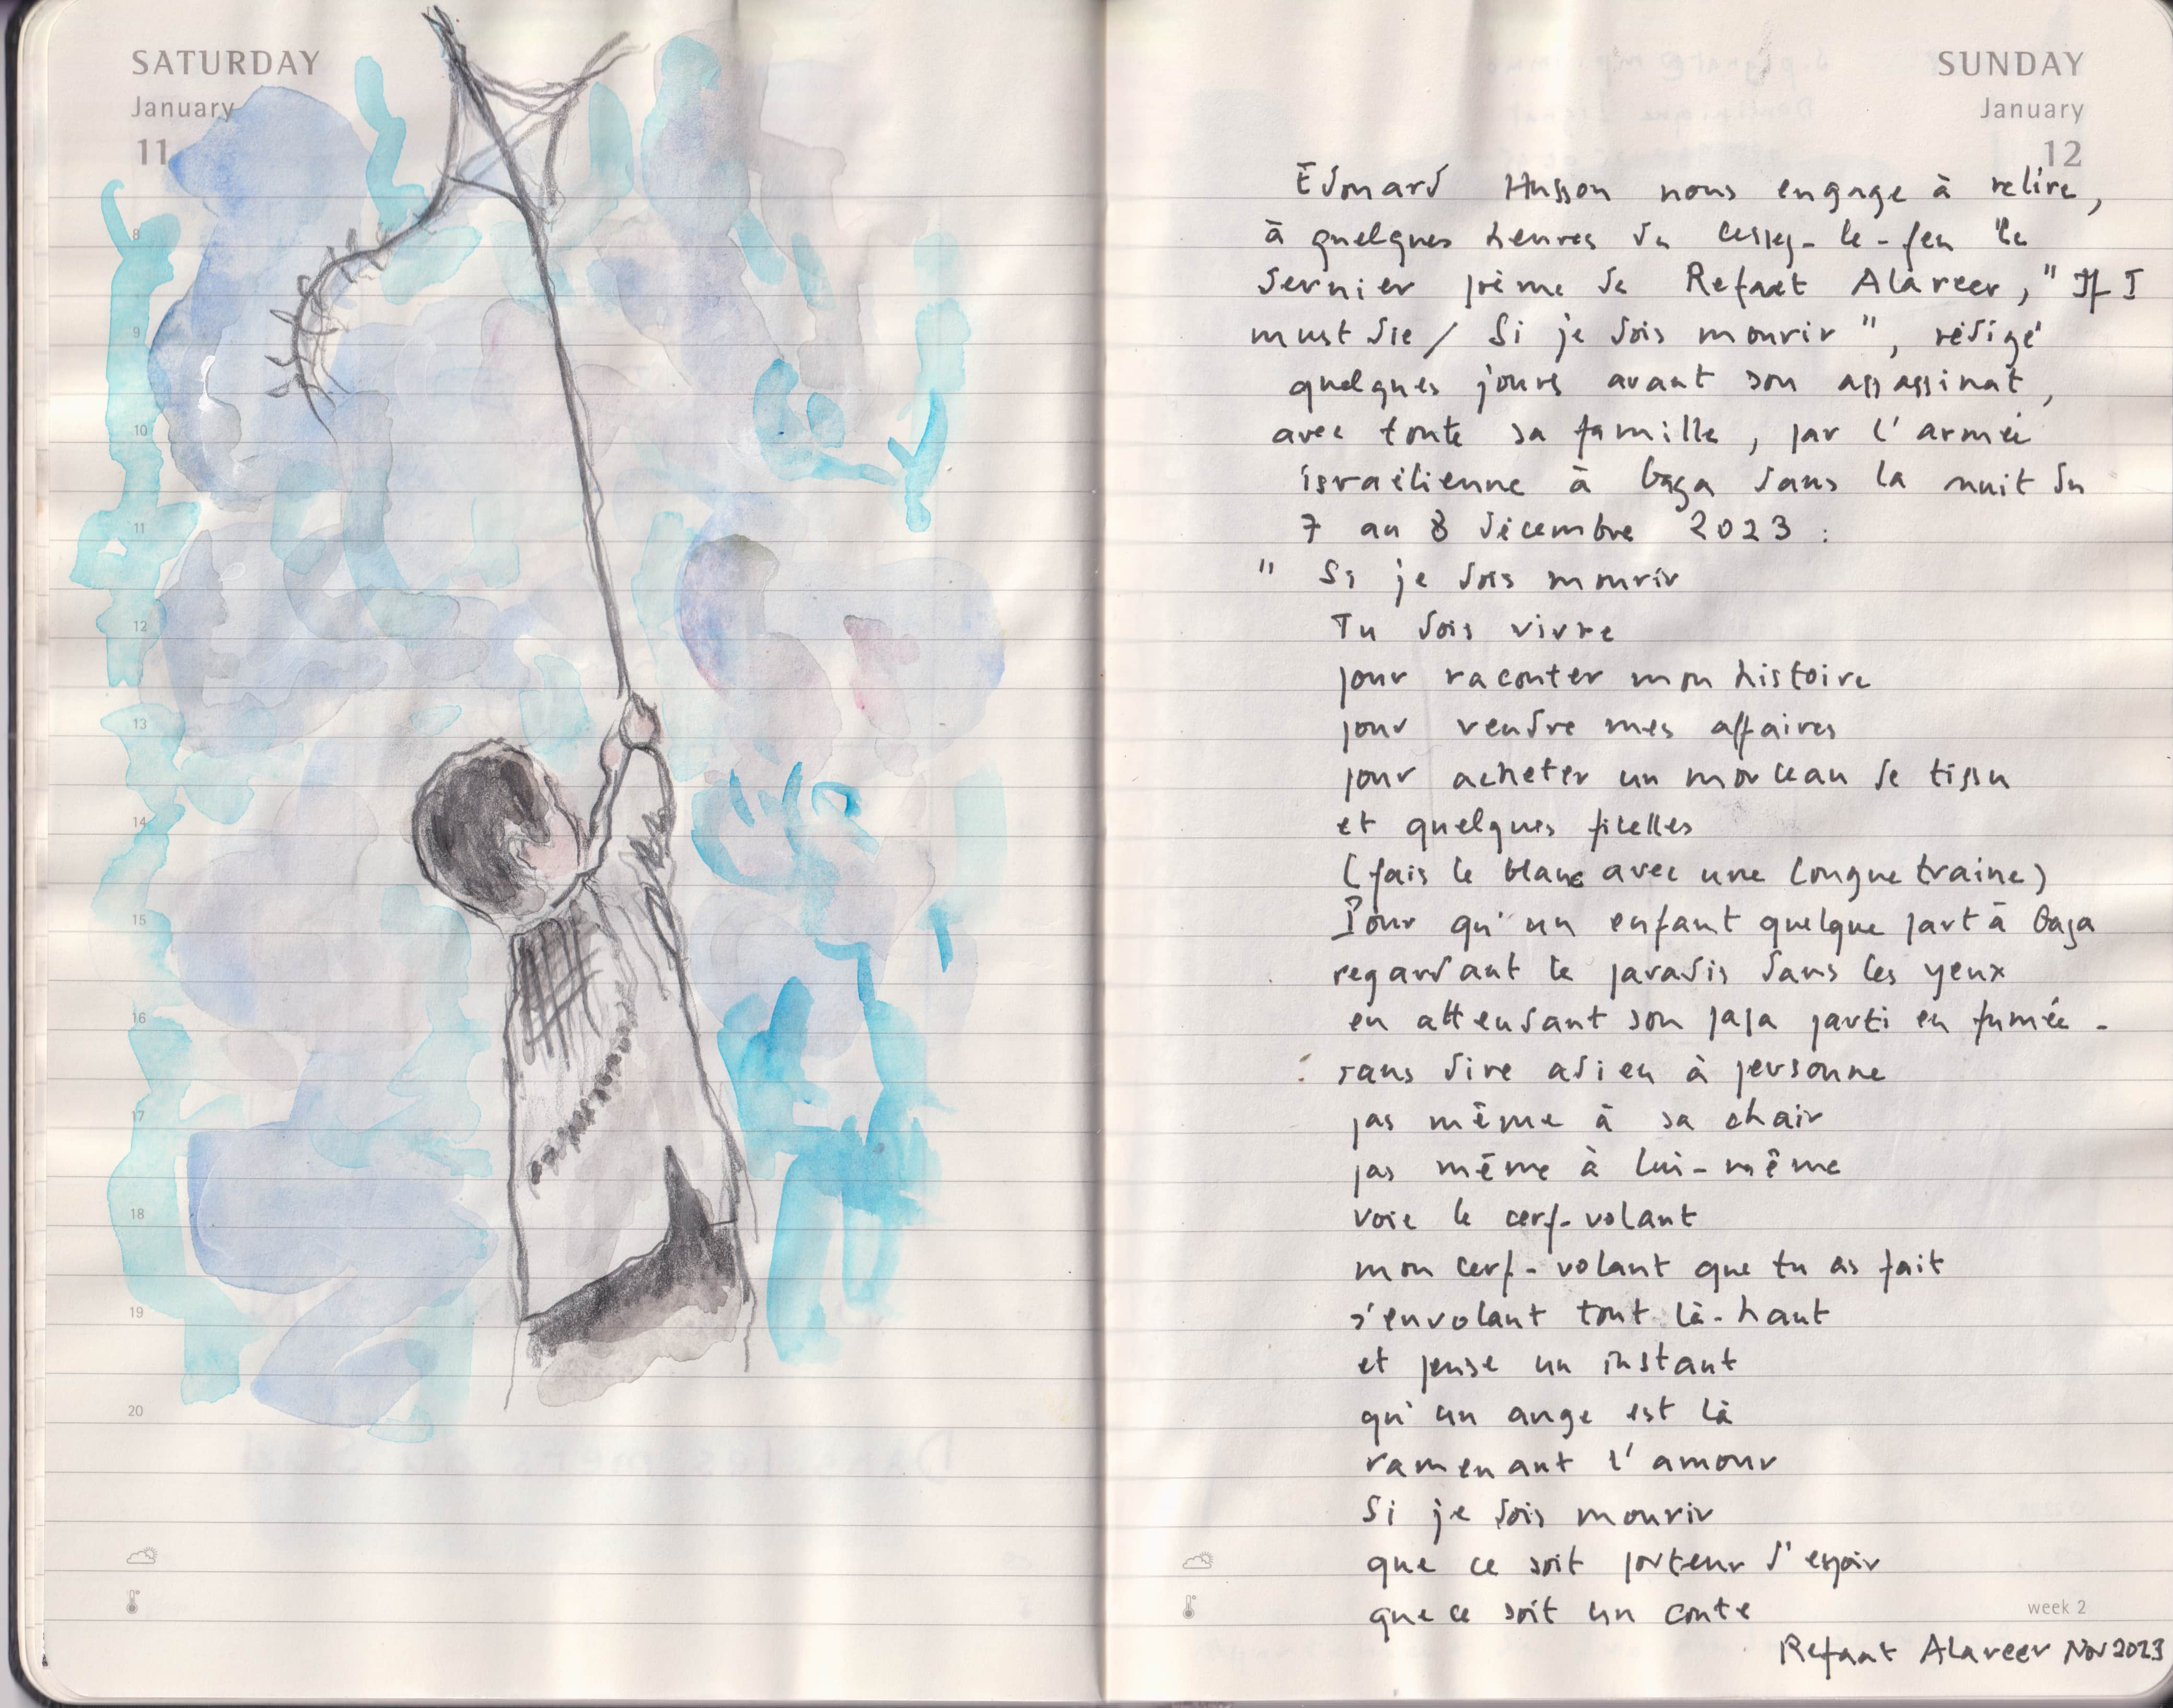 SATURDAY
January
11
8
9
10
11
12
13
14
15
16
17
18
19
20
SUNDAY
January
12
Edouard Husson nous engage à relire,
à quelques heures du cessez-le-feu le
dernier poème de Refaat Alareer, "If I
must die / Si je dois mourir", rédigé
quelques jours avant son assassinat,
avec toute sa famille, par l'armée
israélienne à Gaza dans la nuit du
7 au 8 décembre 2023 :
" Si je dois mourir
Tu dois vivre
pour raconter mon histoire
pour vendre mes affaires
pour acheter un morceau de tissu
et quelques ficelles
(fais le blanc avec une longue traine)
Pour qu'un enfant quelque part à Gaza
regardant le paradis dans les yeux
en attendant son papa parti en fumée -
sans dire adieu à personne
pas même à sa chair
pas même à lui-même
voie le cerf-volant
mon cerf-volant que tu as fait
s'envolant tout là-haut
et pense un instant
qu'un ange est là
ramenant l'amour
Si je dois mourir
que ce soit porteur d'espoir
que ce soit un conte
week 2
Refaat Alareer Nov 2023